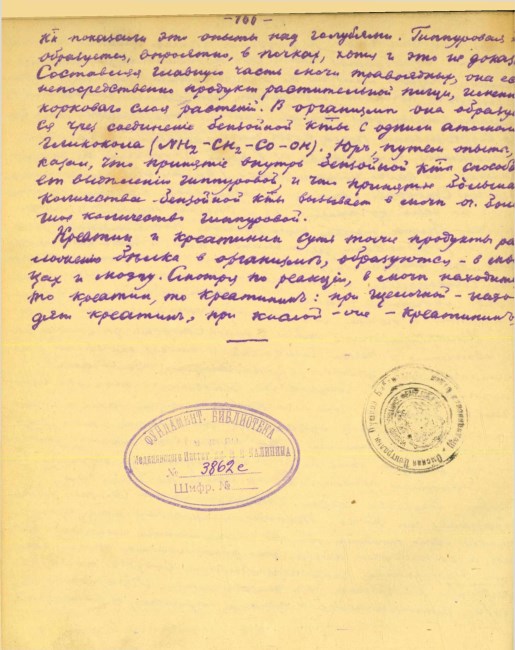 - 166 -
ка показали это опыты надъ голубями. Гиппуровая
образуется, вѣроятно, въ почкахъ, хотя и это не доказ
Составляя главную часть мочи травоядныхъ, она ес
непосредственно продуктъ растительной пищи, именно
корковаго слоя растеній. Въ организмѣ она образуе
ся чрезъ соединеніе бензойной к-ты съ однимъ атомомъ
гликокола (NH2-CH2-CO-OH). путемъ опыта
казалъ, что принятіе внутрь бензойной к-ты способ
етъ выдѣленію гиппуровой, и что принятыя большія
количества бензойной к-ты вызываетъ въ мочѣ
количество гиппуровой.
Креатинъ и креатининъ суть тоже продукты ра
бѣлка въ организмѣ, образуются - въ
цахъ и мозгу. Смотря по реакціи, въ мочѣ находится
то креатинъ, то креатининъ: при щелочной - нахо
дятъ креатинъ, при кислой - - креатининъ
ФУНДАМЕНТ. БИБЛИОТЕКА
КАЛИНИНА
№ 3862с
Шифр. №